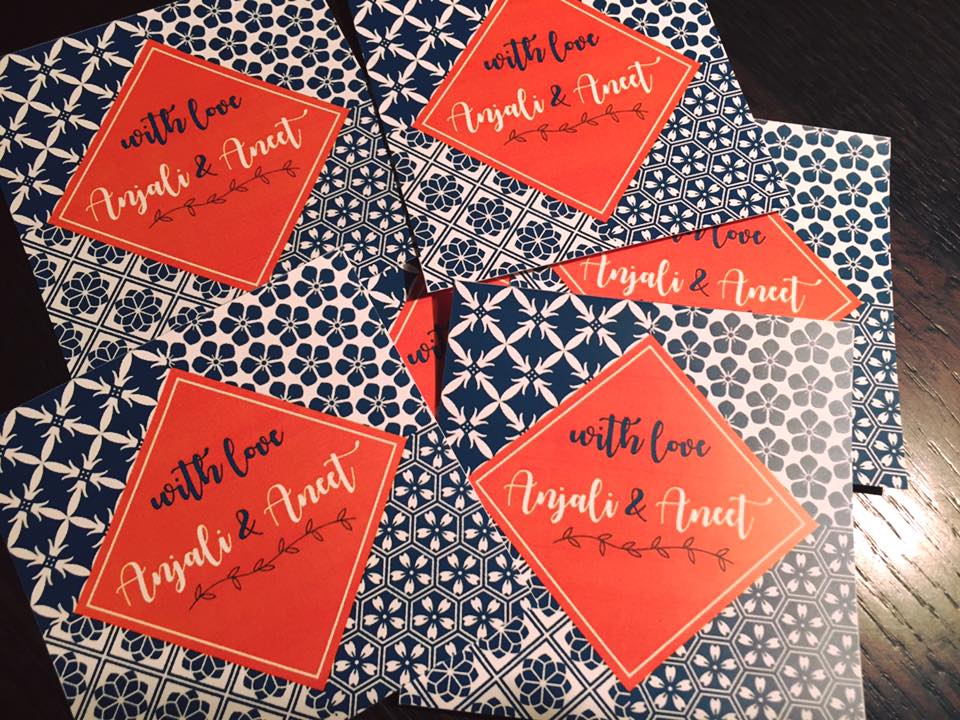 with love
Anjali & Aneet
with love
Anjali & Aneet
love
Anjali & Aneet
with love
Anjali & Aneet
with love
Anjali & Aneet